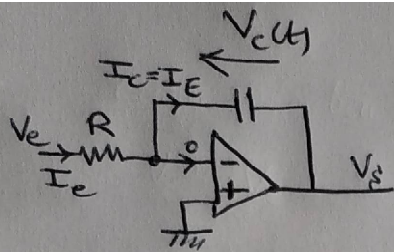 Vc(t)
Ic=IE
Ve R 0 -
Ie + Vs